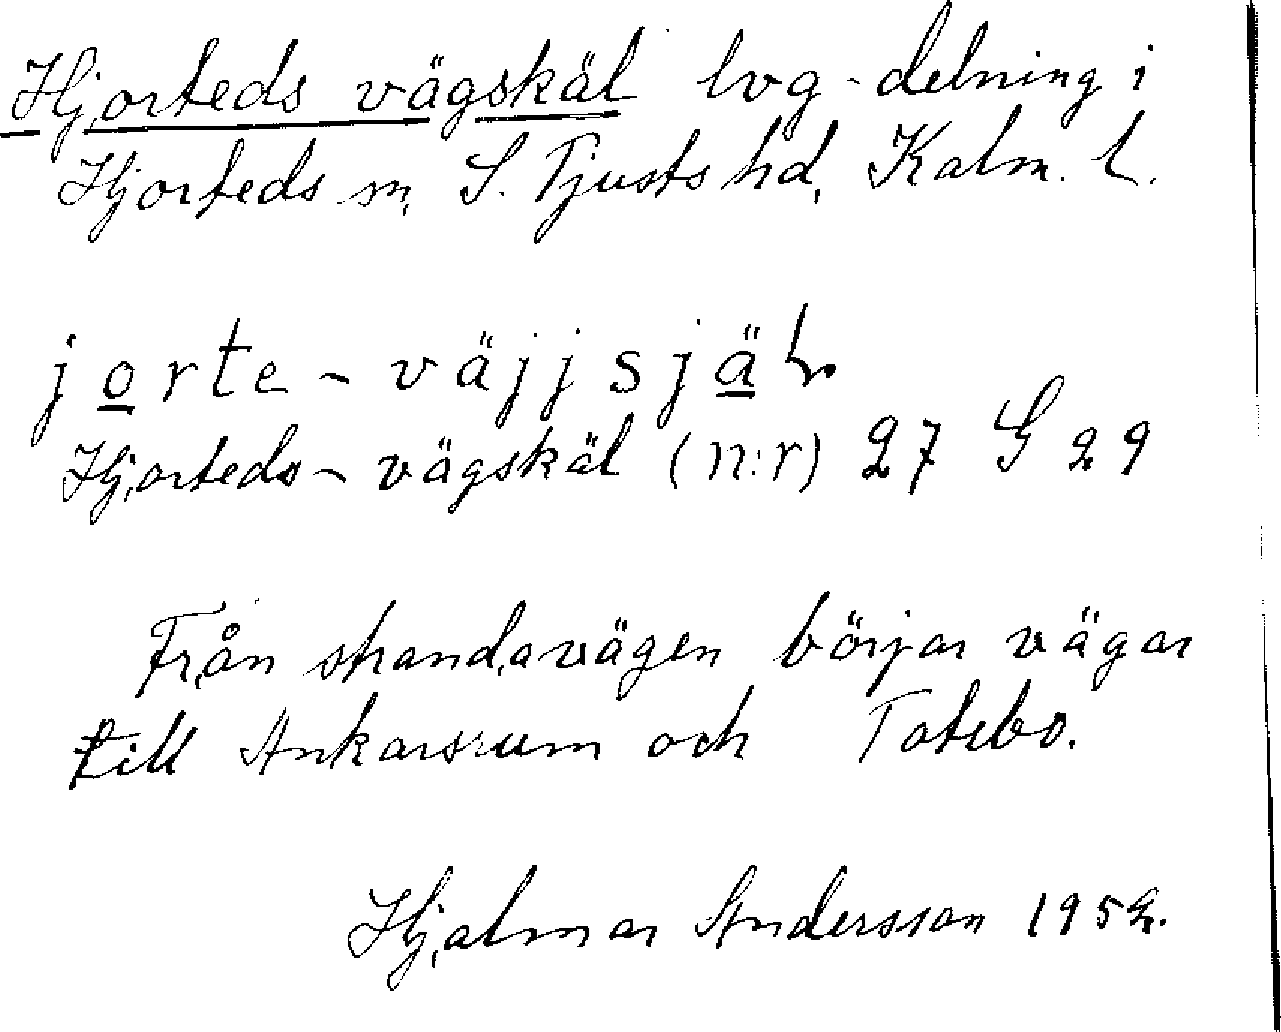 Hjorteds vägskäl lvg-delning i
Hjorteds sn, S. Tjusts hd, Kalm. l.
jorte-väjjsjäl
Hjorteds-vägskäl (n:r) 27 G 29
Från strandavägen börjar vägar
till Ankarsrum och Totebo.
Hjalmar Andersson 1952.